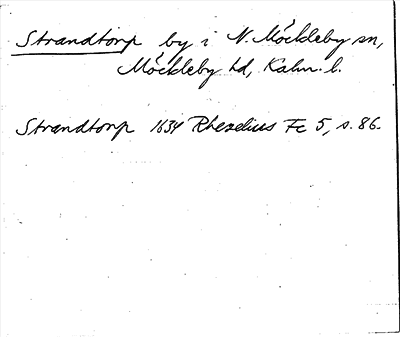 Strandtorp by i N. Möckleby sn,
Möckleby hd, Kalm. l.
Strandtorp 1634 Rhezelius Fc 5, s. 86.